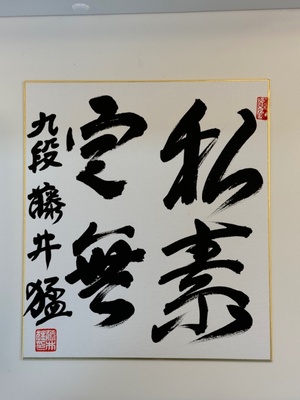 私素
定無
九段 藤井猛